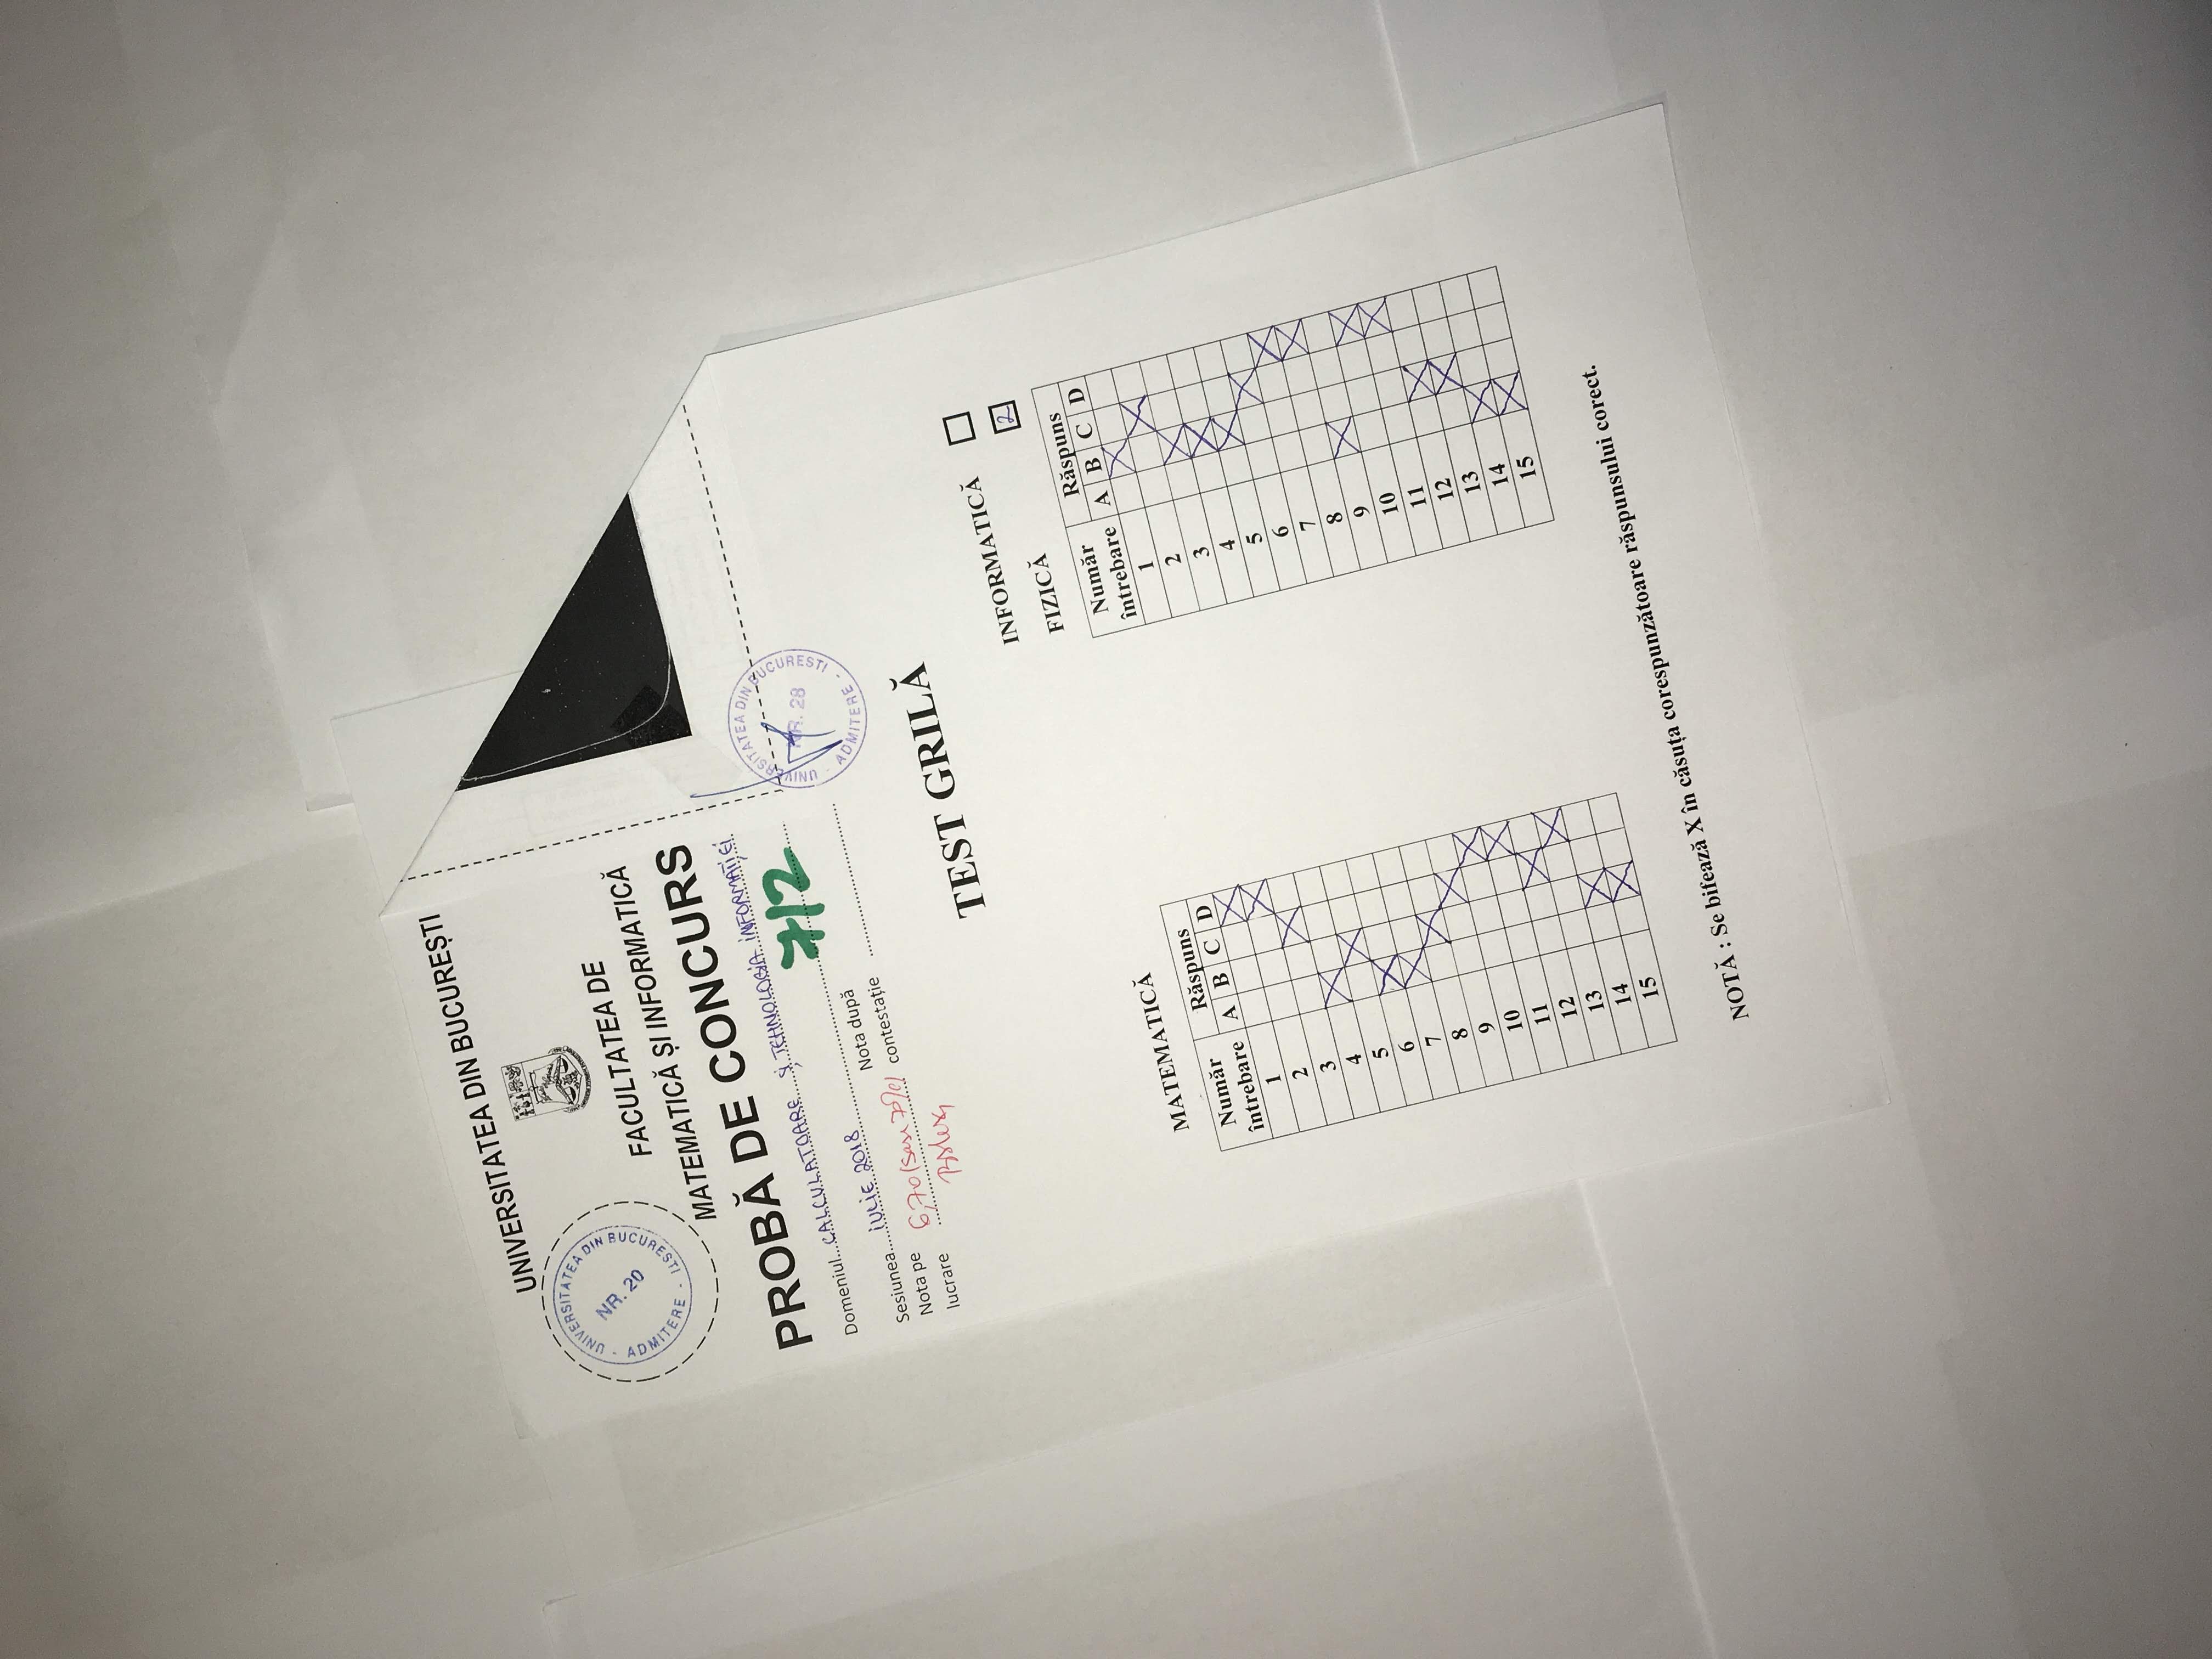 UNIVERSITATEA DIN BUCUREȘTI
UNIVERSITATEA DIN BUCUREȘTI - ADMITERE -
NR. 20
FACULTATEA DE
MATEMATICĂ ȘI INFORMATICĂ
PROBĂ DE CONCURS
Domeniul CALCULATOARE și TEHNOLOGIA INFORMAȚIEI
7/2
Sesiunea iULiE 2018
Nota pe lucrare 6,70 (șase 70%)
Nota după contestație
UNIVERSITATEA DIN BUCURESTI - ADMITERE -
NR. 28
TEST GRILĂ
INFORMATICĂ
FIZICĂ 2
Număr întrebare Răspuns
A B C D
1
2
3
4
5
6
7
8
9
10
11
12
13
14
15
MATEMATICĂ
Număr întrebare Răspuns
A B C D
1
2
3
4
5
6
7
8
9
10
11
12
13
14
15
NOTĂ : Se bifează X în căsuța corespunzătoare răspunsului corect.